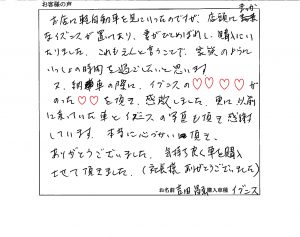 お客様の声
お店に軽自動車を見にいったのですが、店頭に まっか
なイグニスが置いてあり、妻がひとめぼれし、購入にい
たりました。これもえんと言うことで、家族のように
いっしょの時間を過ごしたいと思います
又、納車の際に、イグニスの♡♡♡♡が
のった♡♡を頂き、感激しました。更に以前
に乗っていた車とイグニスの写真も頂き感謝
しています。本当に心づかい頂き、
ありがとうございました。気持ち良く車を購入
させて頂きました。(社長様ありがとうございました)
お名前 吉田 購入車種 イグニス